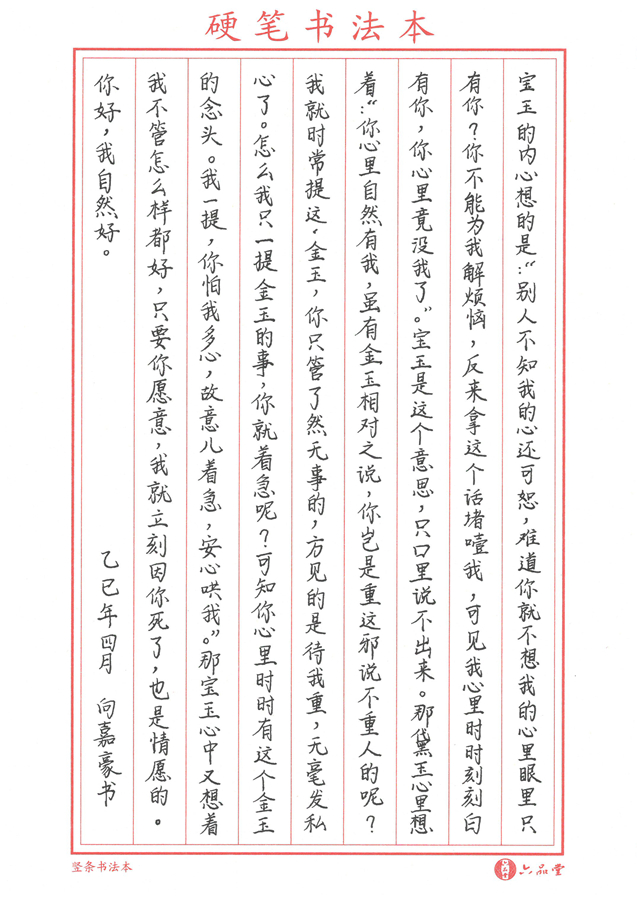 硬笔书法本
宝玉的内心想的是：“别人不知我的心还可恕，难道你就不想我的心里眼里只
有你？你不能为我解烦恼，反来拿这个话堵噎我，可见我心里时时刻刻白
有你，你心里竟没我了”。宝玉是这个意思，只口里说不出来。那黛玉心里想
着：“你心里自然有我，虽有金玉相对之说，你岂是重这邪说不重人的呢？
我就时常提这‘金玉，你只管了然无事的，方见的是待我重，无毫发私
心了。怎么我只一提金玉的事，你就着急呢？可知你心里时时有这个金玉
的念头。我一提，你怕我多心，故意儿着急，安心哄我。”那宝玉心中又想着
我不管怎么样都好，只要你愿意，我就立刻因你死了，也是情愿的。
你好，我自然好。
乙巳年四月 向嘉豪书
竖条书法本
六品堂
六品堂